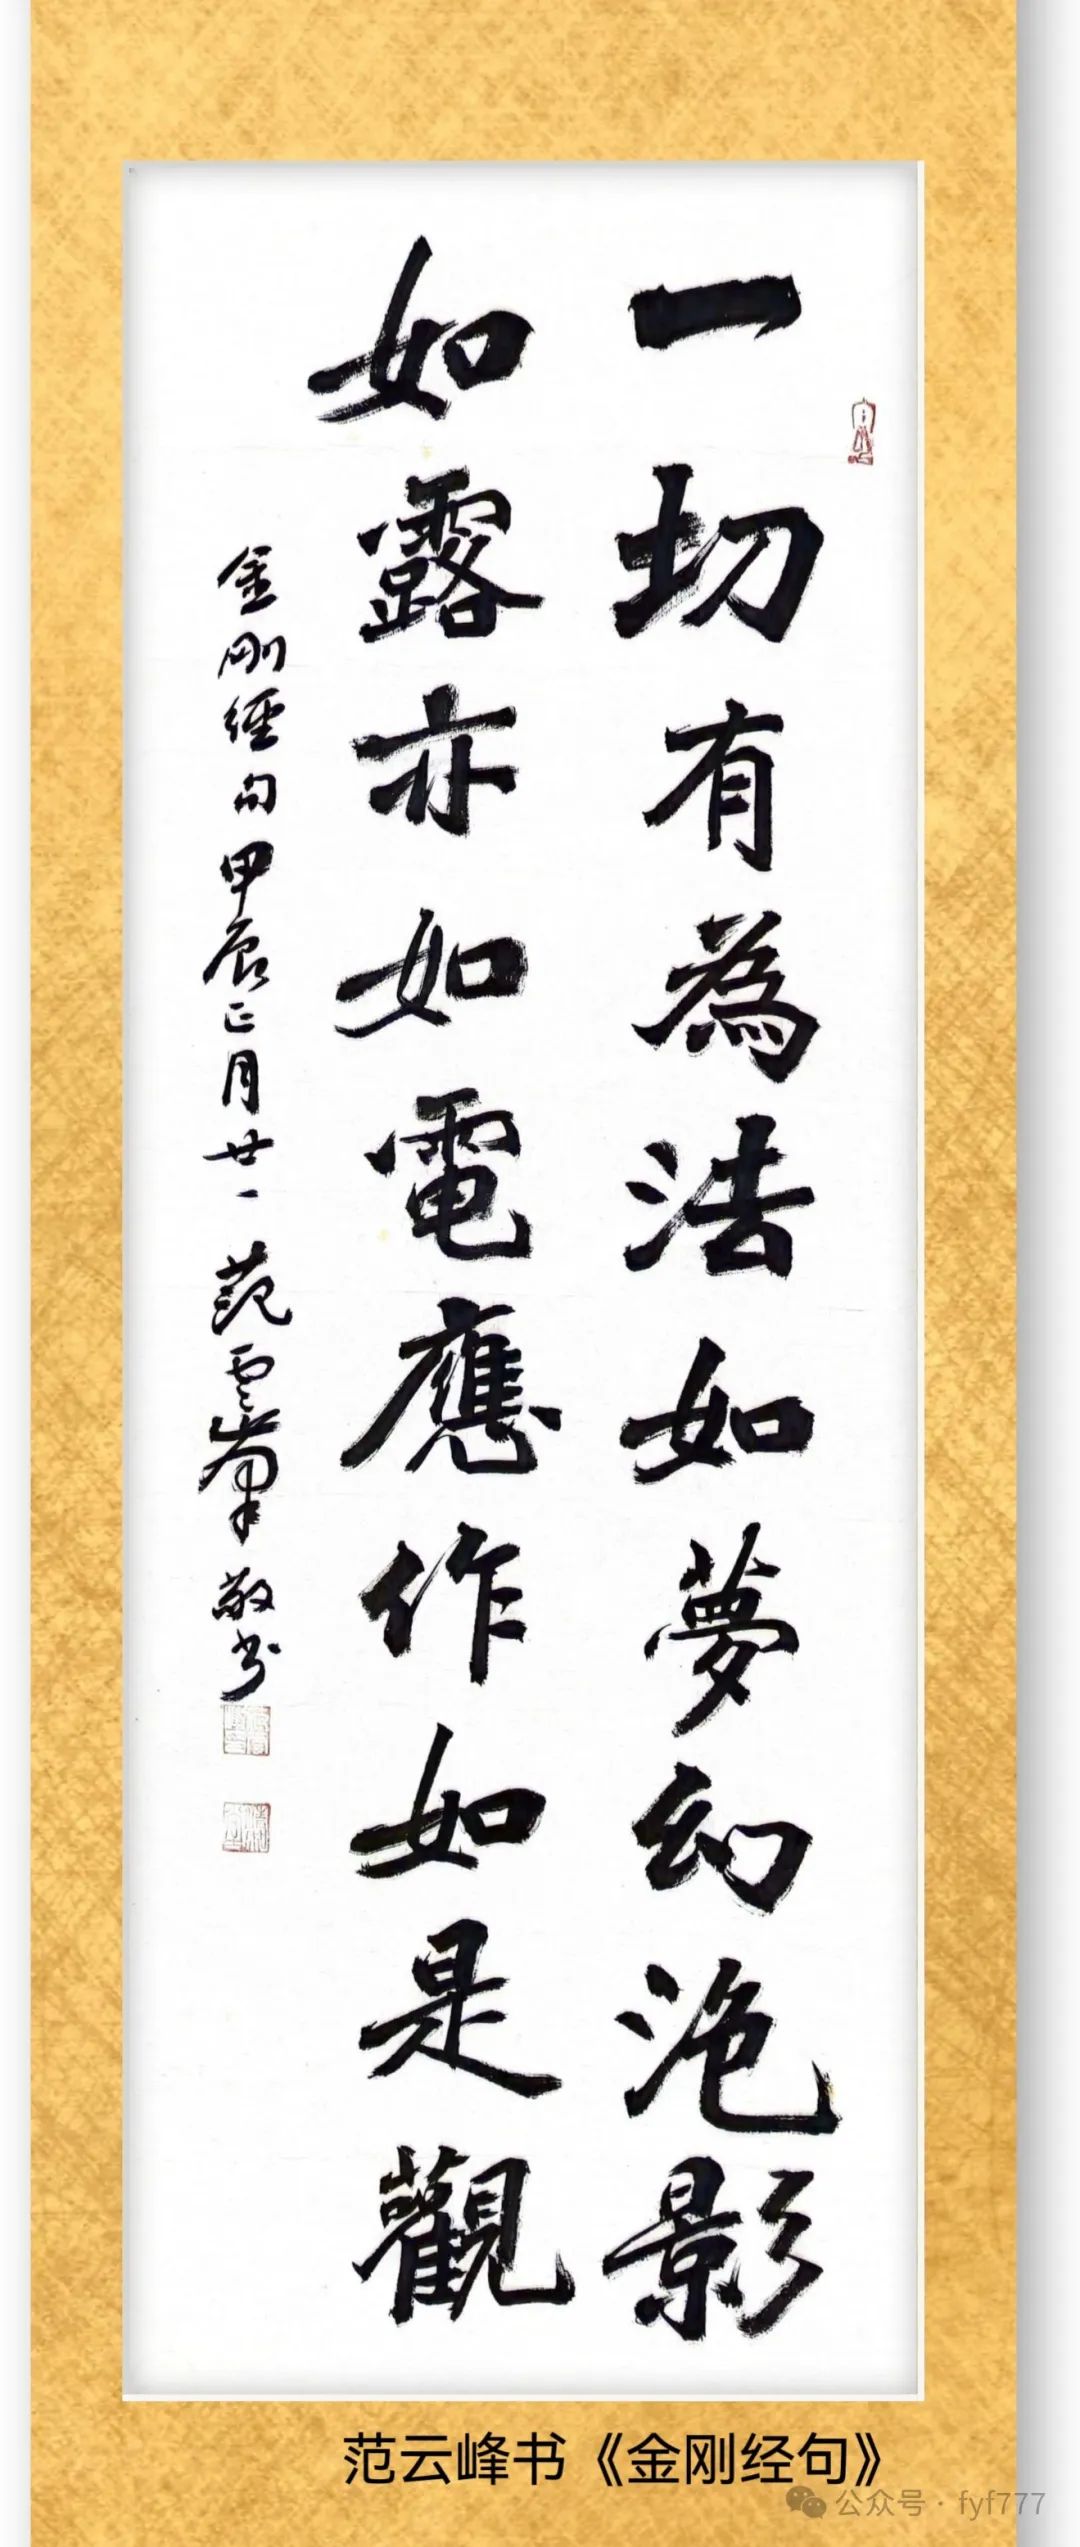 一切有為法如夢幻泡影
如露亦如電應作如是觀
金剛經句甲辰正月廿一范雲峯敬书
范云峰书《金刚经句》
公众号·fyf777